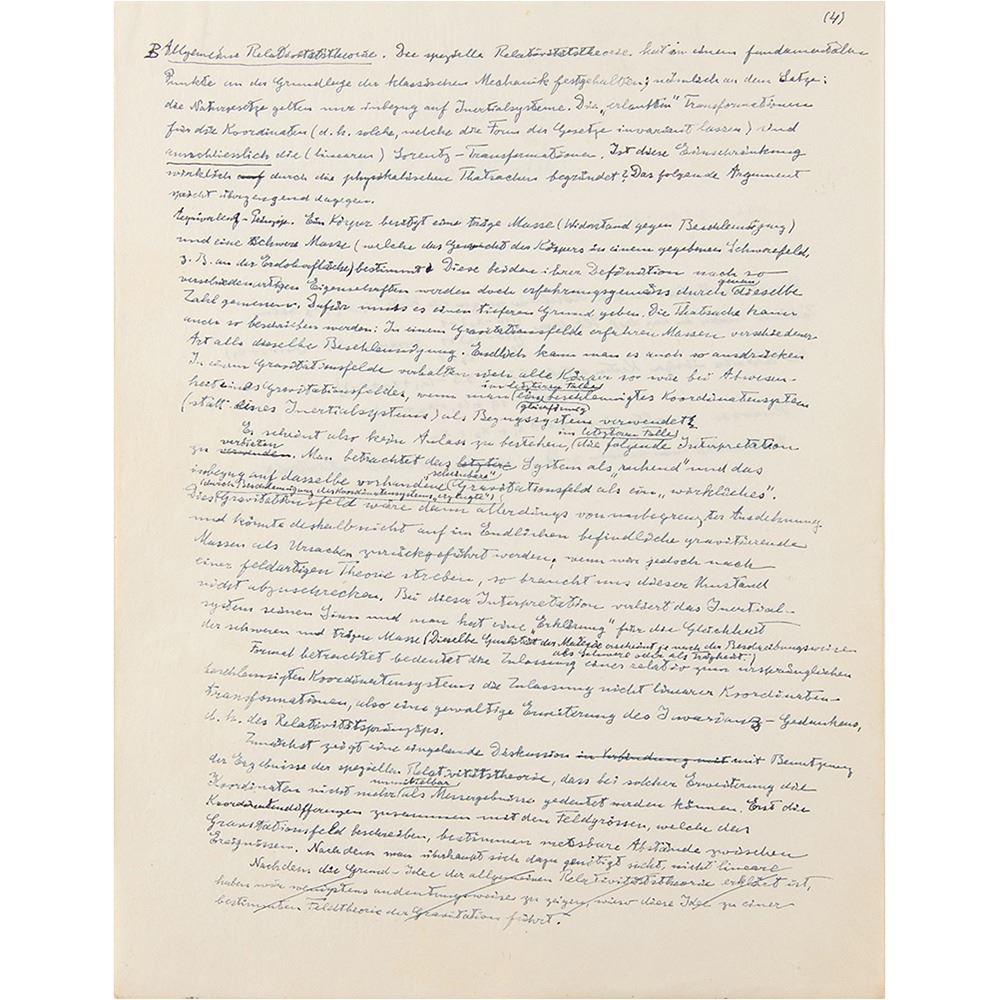 (4)
B Allgemeine Relativitätstheorie. Die spezielle Relativitätstheorie hat in einem fundamentalen
Punkte an der Grundlage der klassischen Mechanik festgehalten; nämlich an dem Satze:
die Naturgesetze gelten nur inbezug auf Inertialsysteme. Die „erlaubten" Transformationen
für die Koordinaten (d. h. solche, welche die Form der Gesetze invariant lassen) sind
ausschliesslich die (linearen) Lorentz-Transformationen. Ist diese Einschränkung
wirklich auf durch die physikalischen Thatsachen begründet? Das folgende Argument
spricht überzeugend dagegen.
Aequivalenz-Prinzip. Ein Körper besitzt eine träge Masse (Widerstand gegen Beschleunigung)
und eine schwere Masse (welche das Gewicht des Körpers in einem gegebenen Schwerefeld,
z. B. an der Erdoberfläche) bestimmt. Diese beiden ihrer Definition nach so
genau
verschiedenartigen Eigenschaften werden doch erfahrungsgemäss durch dieselbe
Zahl gemessen. Dafür muss es einen tieferen Grund geben. Die Thatsache kann
auch so beschrieben werden: In einem Gravitationsfelde erfahren Massen verschiedener
Art alle dieselbe Beschleunigung. Endlich kann man es auch so ausdrücken
In einem Gravitätsfelde verhalten sich alle Körper so wie bei Abwesen-
im letzteren Falle
heit eines Gravitationsfeldes, wenn man ein beschleunigtes Koordinatensystem
gleichförmig
(statt eines Inertialsystems) als Bezugssystem verwendet.
im letzteren Falle
Es scheint also kein Anlass zu bestehen, die folgende Interpretation
verbieten
zu verwenden. Man betrachtet das letztere System als „ruhend" und das
„scheinbare"
inbezug auf dasselbe vorhandene Gravitationsfeld als ein „wirkliches".
(durch Beschleunigung des Koordinatensystems „erzeugte")
Dies Gravitationsfeld wäre dann allerdings von unbegrenzter Ausdehnung
und könnte deshalb nicht auf im Endlichen befindliche gravitierende
Massen als Ursachen zurückgeführt werden, wenn wir jedoch nach
einer feldartigen Theorie streben, so braucht uns dieser Umstand
nicht abzuschrecken. Bei dieser Interpretation verliert das Inertial-
system seinen Sinn und man hat eine „Erklärung" für die Gleichheit
der schweren und trägen Masse (Dieselbe Qualität der Materie erscheint je nach der Beschreibungsweise
als Schwere oder als Trägheit.)
Formal betrachtet bedeutet die Zulassung eines relativ zum ursprünglichen
beschleunigten Koordinatensystems die Zulassung nicht linearer Koordinaten-
transformationen, also eine gewaltige Erweiterung des Invarianz-Gedankens,
d. h. des Relativitätsprinzips.
Zunächst zeigt eine eingehende Diskussion in Verbindung mit mit Benutzung
der Ergebnisse der speziellen Relativitätstheorie, dass bei solcher Erweiterung die
unmittelbar
Koordinaten nicht mehr als Messergebnisse gedeutet werden können. Erst die
Koordinatendifferenzen zusammen mit den Feldgrössen, welche das
Gravitationsfeld beschreiben, bestimmen messbare Abstände zwischen
Ereignissen. Nachdem man überhaupt sich dazu genötigt sieht, nicht lineare
Nachdem die Grund-Idee der allgemeinen Relativitätstheorie erklärt ist,
haben wir wenigstens andeutungsweise zu zeigen, wieso diese Idee zu einer
bestimmten Feldtheorie der Gravitation führt.